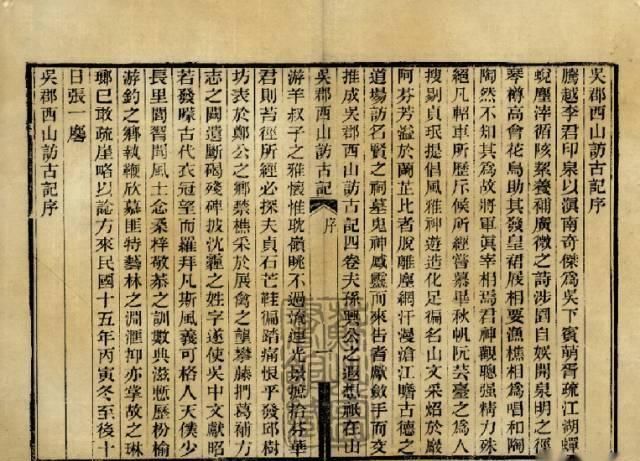 吳郡西山訪古記序
騰越李君印泉以滇南奇傑為吳下賓萌胥疏江湖蟬
蛻塵滓循陔絜養補廣微之詩涉園自娛開泉明之徑
琴樽高會花鳥助其發皇裙屐相要漁樵相為唱和陶
陶然不知其為故將軍眞宰相焉君神觀聰强精力殊
絕凡軺車所歷斥候所經嘗慕畢秋帆阮芸臺之為人
搜剔貞珉提倡風雅神遊造化足徧名山文采焰於巖
阿芬芳溢於蘭芷比者脫離塵網汗漫滄江瞻古德之
道場訪名賢之祠墓鬼神感靈而來告耆獻斂手而交
推成吳郡西山訪古記四卷夫孫興公之遐想祇在山
吳郡西山訪古記 序
游羊叔子之雅懷惟耽嶺眺不過流連光景摭拾芬華
君則苔徑所經必探夫貞石芒鞋徧踏痛恨乎發邱樹
坊表於鄭公之鄉禁樵采於展禽之壟攀藤捫葛補方
志之闕遺斷碣殘碑披沈薶之姓字遂使吳中文獻昭
若發矇古代衣冠望而羅拜凡斯風義可格人天僕少
長里閭習聞風土念桑梓敬恭之訓數典滋慙歷枌榆
游釣之鄉執鞭欣慕匪特藝林之淵滙抑亦掌故之琳
瑯已敢疏崖略以諗方來民國十五年丙寅冬至後十
日張一麐
吳郡西山訪古記序